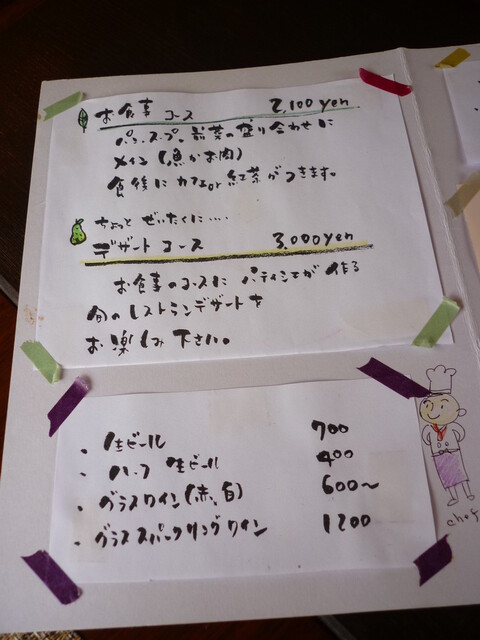 お食事 コース 2,100 yen
パン、スープ、前菜の盛り合わせに
メイン(魚かお肉)
食後にカフェor紅茶がつきます。
ちょっと ぜいたくに....
デザート コース 3,000yen
お食事のコースに パティシエが 作る
旬のレストランデザートを
お楽しみ下さい。
・生ビール 700
・ハーフ 生ビール 400
・グラスワイン(赤、白) 600〜
・グラススパークリングワイン 1200
chef